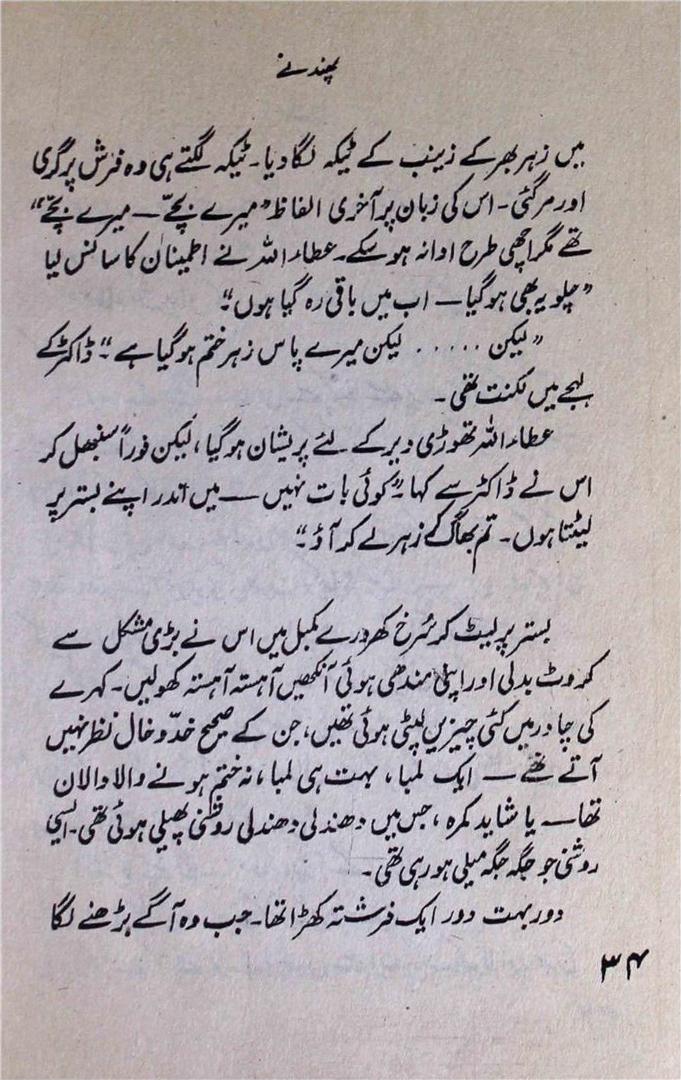 پھندنے
میں زہر بھر کے زینب کے ٹیکہ لگا دیا۔ ٹیکہ لگتے ہی وہ فرش پر گری
اور مر گئی۔ اس کی زبان پر آخری الفاظ ”میرے بچّے — میرے بچّے“
تھے مگر اچھی طرح ادا نہ ہو سکے۔ عطاء اللہ نے اطمینان کا سانس لیا
”چلو یہ بھی ہو گیا — اب میں باقی رہ گیا ہوں“۔
”لیکن ..... لیکن میرے پاس زہر ختم ہو گیا ہے“۔ ڈاکٹر کے
لہجے میں لکنت تھی۔
عطاء اللہ تھوڑی دیر کے لئے پریشان ہو گیا، لیکن فوراً سنبھل کر
اس نے ڈاکٹر سے کہا۔ ”کوئی بات نہیں — میں اندر اپنے بستر پر
لیٹتا ہوں۔ تم بھاگ کے زہر لے کر آؤ۔“
بستر پر لیٹ کر سُرخ کھردرے کمبل میں اس نے بڑی مشکل سے
کروٹ بدلی اور اپنی مندھی ہوئی آنکھیں آہستہ آہستہ کھولیں۔ کہرے
کی چادر میں کئی چیزیں لپٹی ہوئی تھیں، جن کے صحیح خدّوخال نظر نہیں
آتے تھے — ایک لمبا، بہت ہی لمبا، نہ ختم ہونے والا دالان
تھا — یا شاید کمرہ، جس میں دھندلی دھندلی روشنی پھیلی ہوئی تھی۔ ایسی
روشنی جو جگہ جگہ میلی ہو رہی تھی۔
دور بہت دور ایک فرشتہ کھڑا تھا۔ جب وہ آگے بڑھنے لگا
۳۴